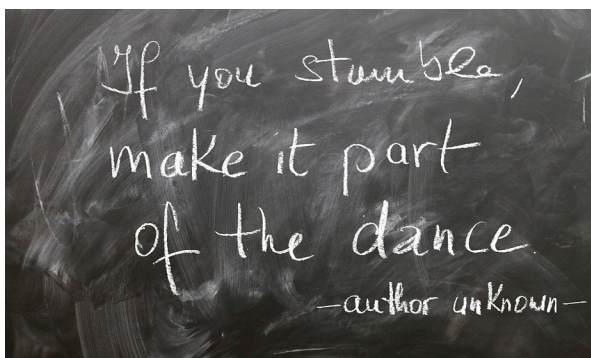 If you stumble,
make it part
of the dance
—author unknown—